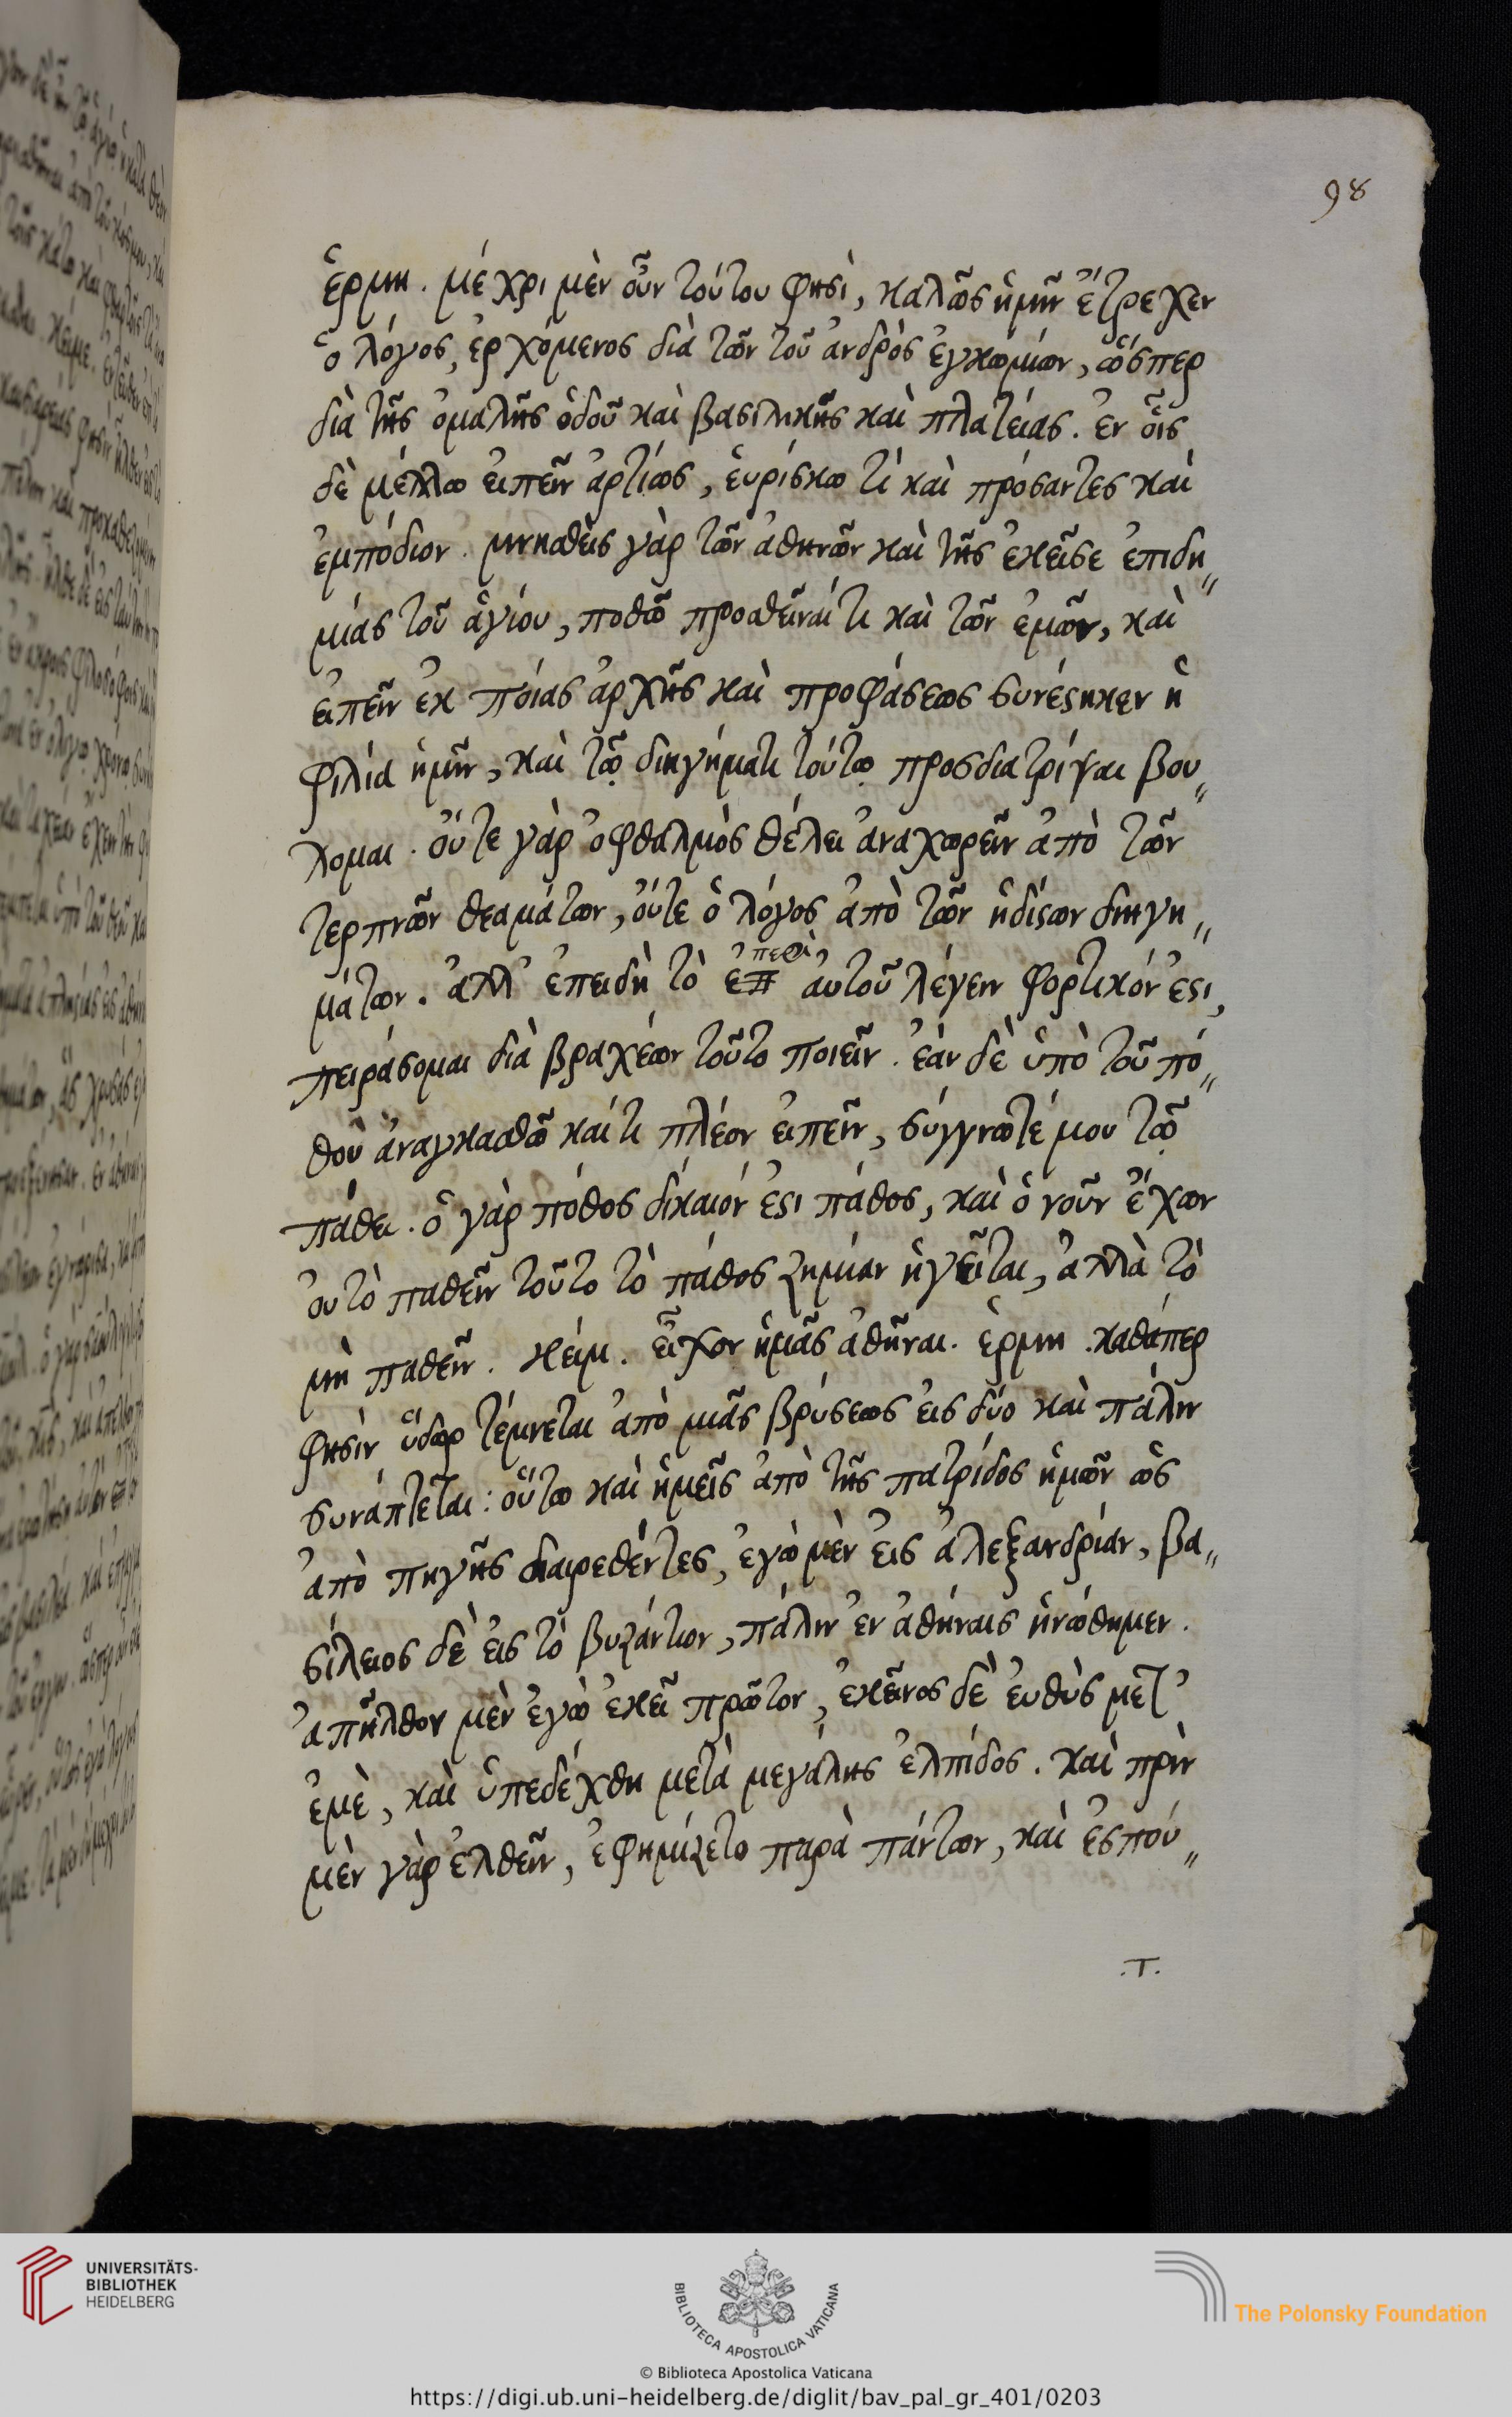 98
ἑρμη. μέχρι μὲν οὖν τούτου φησὶ, καλῶς ἡμῖν ἔτρεχεν
ὁ λόγος, ἐρχόμενος διὰ τῶν τοῦ ἀνδρὸς ἐγκωμίων, ὥσπερ
διὰ τῆς ὁμαλῆς ὁδοῦ καὶ βασιλικῆς καὶ πλατείας. ἐν οἷς
δὲ μέλλω εἰπεῖν ἀρτίως, εὑρίσκω τὶ καὶ πρόσαντες καὶ
ἐμπόδιον. μνησθεὶς γὰρ τῶν ἀθηνῶν καὶ τῆς ἐκεῖσε ἐπιδη„
μίας τοῦ ἁγίου, ποθῶ προσθεῖναί τι καὶ τῶν ἐμῶν, καὶ
εἰπεῖν ἐκ ποίας ἀρχῆς καὶ προφάσεως συνέστηκεν ἡ
φιλία ἡμῖν, καὶ τῷ διηγήματι τούτῳ προσδιατρίψαι βού„
λομαι. οὔτε γὰρ ὀφθαλμὸς θέλει ἀναχωρεῖν ἀπὸ τῶν
τερπνῶν θεαμάτων, οὔτε ὁ λόγος ἀπὸ τῶν ἡδίστων διηγη„
μάτων. ἀλλ' ἐπειδὴ τὸ περὶ ἑαυτοῦ λέγειν φορτικόν ἐστι,
πειράσομαι διὰ βραχέων τοῦτο ποιεῖν. ἐὰν δὲ ὑπὸ τοῦ πό„
θου ἀναγκασθῶ καί τι πλέον εἰπεῖν, σύγγνωτέ μου τῷ
πάθει. ὁ γὰρ πόθος δίκαιόν ἐστι πάθος, καὶ ὁ νοῦν ἔχων
οὐ τὸ παθεῖν τοῦτο τὸ πάθος ζημίαν ἡγεῖται, ἀλλὰ τὸ
μὴ παθεῖν. κείμ. εἶχον ἡμᾶς ἀθῆναι. ἑρμη. καθάπερ
φησὶν ὕδωρ τέμνεται ἀπὸ μιᾶς βρύσεως εἰς δύο καὶ πάλιν
συνάπτεται: οὕτω καὶ ἡμεῖς ἀπὸ τῆς πατρίδος ἡμῶν ὡς
ἀπὸ πηγῆς διαιρεθέντες, ἐγὼ μὲν εἰς ἀλεξανδρίαν, βα„
σίλειος δὲ εἰς τὸ βυζάντιον, πάλιν ἐν ἀθήναις ἡνώθημεν.
ἀπῆλθον μὲν ἐγὼ ἐκεῖ πρῶτον, ἐκεῖνος δὲ εὐθὺς μετ'
ἐμὲ, καὶ ὑπεδέχθη μετὰ μεγάλης ἐλπίδος. καὶ πρὶν
μὲν γὰρ ἐλθεῖν, ἐφημίζετο παρὰ πάντων, καὶ ἐσπού„
.T.
UNIVERSITÄTS-
BIBLIOTHEK
HEIDELBERG
BIBLIOTECA APOSTOLICA VATICANA
The Polonsky Foundation
© Biblioteca Apostolica Vaticana
https://digi.ub.uni-heidelberg.de/diglit/bav_pal_gr_401/0203